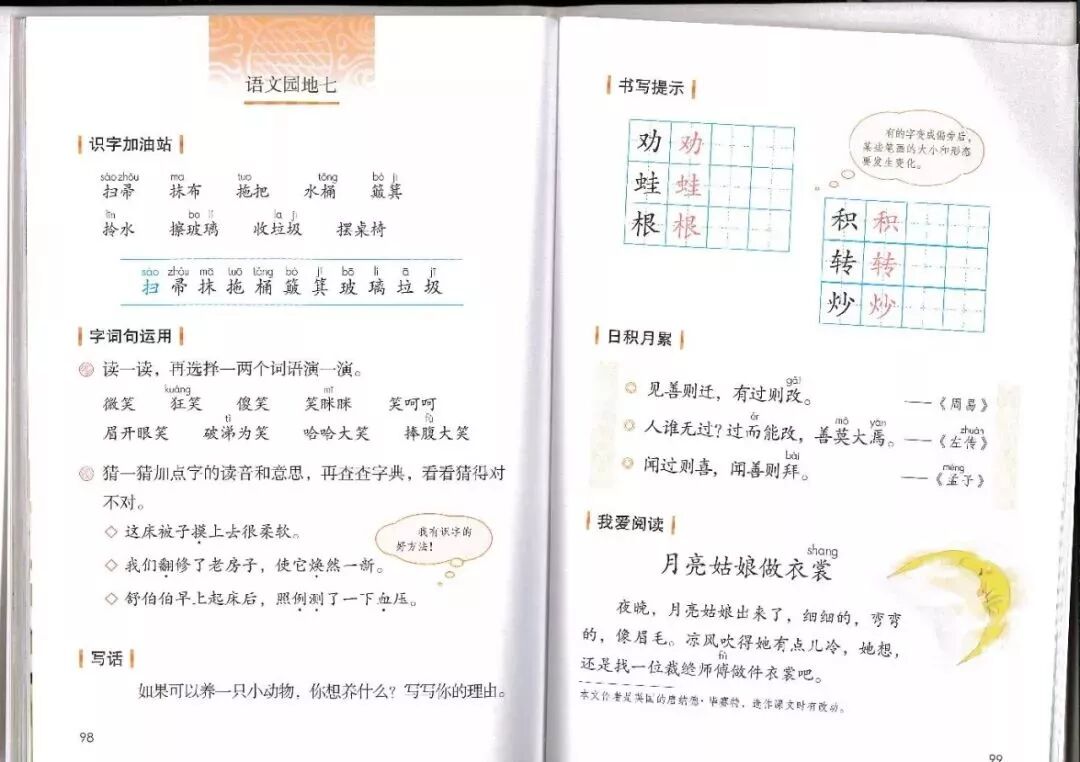 语文园地七
识字加油站
sào zhou ma tuo tǒng bo ji
扫帚 抹布 拖把 水桶 簸箕
līn bō lí lā jī
拎水 擦玻璃 收垃圾 摆桌椅
sào zhǒu mā tuō tǒng bò jī bō lí lā jī
扫 帚 抹 拖 桶 簸 箕 玻 璃 垃 圾
字词句运用
读一读，再选择一两个词语演一演。
kuáng mī
微笑 狂笑 傻笑 笑眯眯 笑呵呵
tì fù
眉开眼笑 破涕为笑 哈哈大笑 捧腹大笑
猜一猜加点字的读音和意思，再查查字典，看看猜得对
不对。
◇ 这床被子摸上去很柔软。
◇ 我们翻修了老房子，使它焕然一新。
◇ 舒伯伯早上起床后，照例测了一下血压。
我有识字的
好方法！
写话
如果可以养一只小动物，你想养什么？写写你的理由。
98
书写提示
劝 劝
蛙 蛙
根 根
有的字变成偏旁后，
某些笔画的大小和形态
要发生变化。
积 积
转 转
炒 炒
日积月累
gǎi
见善则迁，有过则改。 ——《周易》
ér mò yān zhuàn
人谁无过？过而能改，善莫大焉。 ——《左传》
bài mèng
闻过则喜，闻善则拜。 ——《孟子》
我爱阅读
shang
月亮姑娘做衣裳
夜晚，月亮姑娘出来了，细细的，弯弯
的，像眉毛。凉风吹得她有点儿冷，她想，
fu
还是找一位裁缝师傅做件衣裳吧。
本文作者是英国的唐纳德·毕赛特，选作课文时有改动。
99